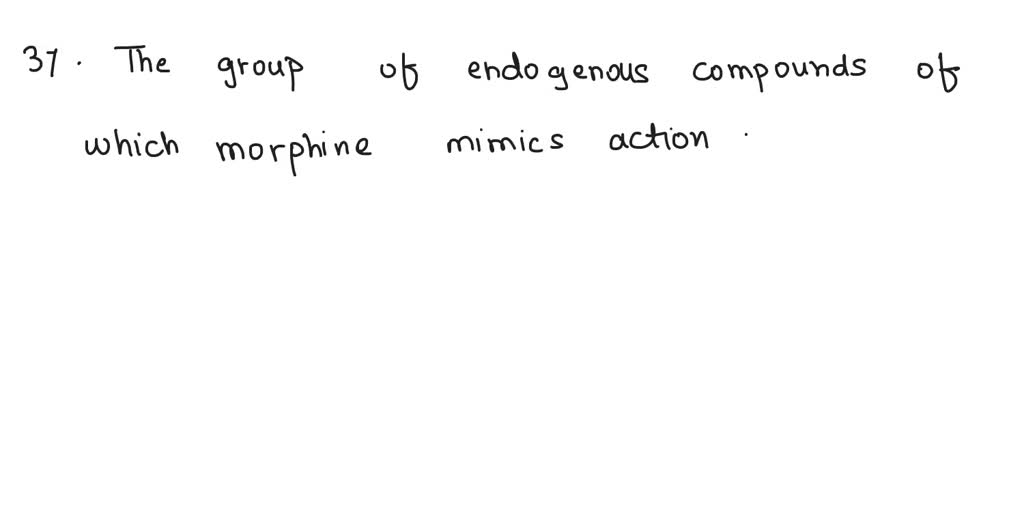 37. The group of endogenous compounds of
which morphine mimics action.